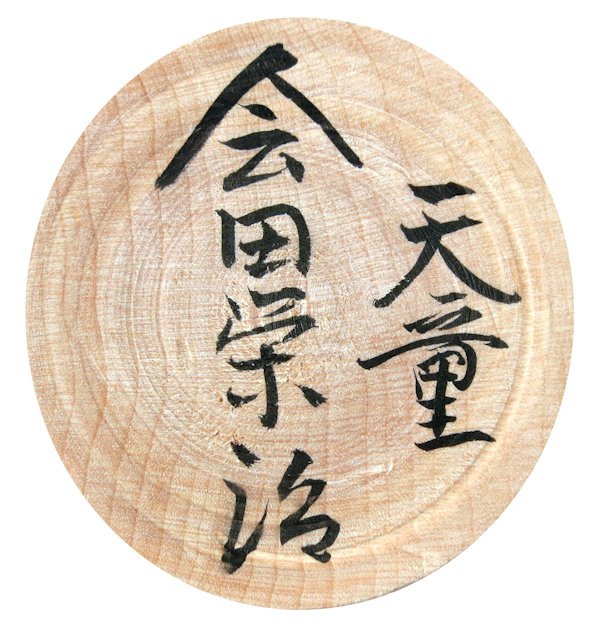 天童
会田栄治